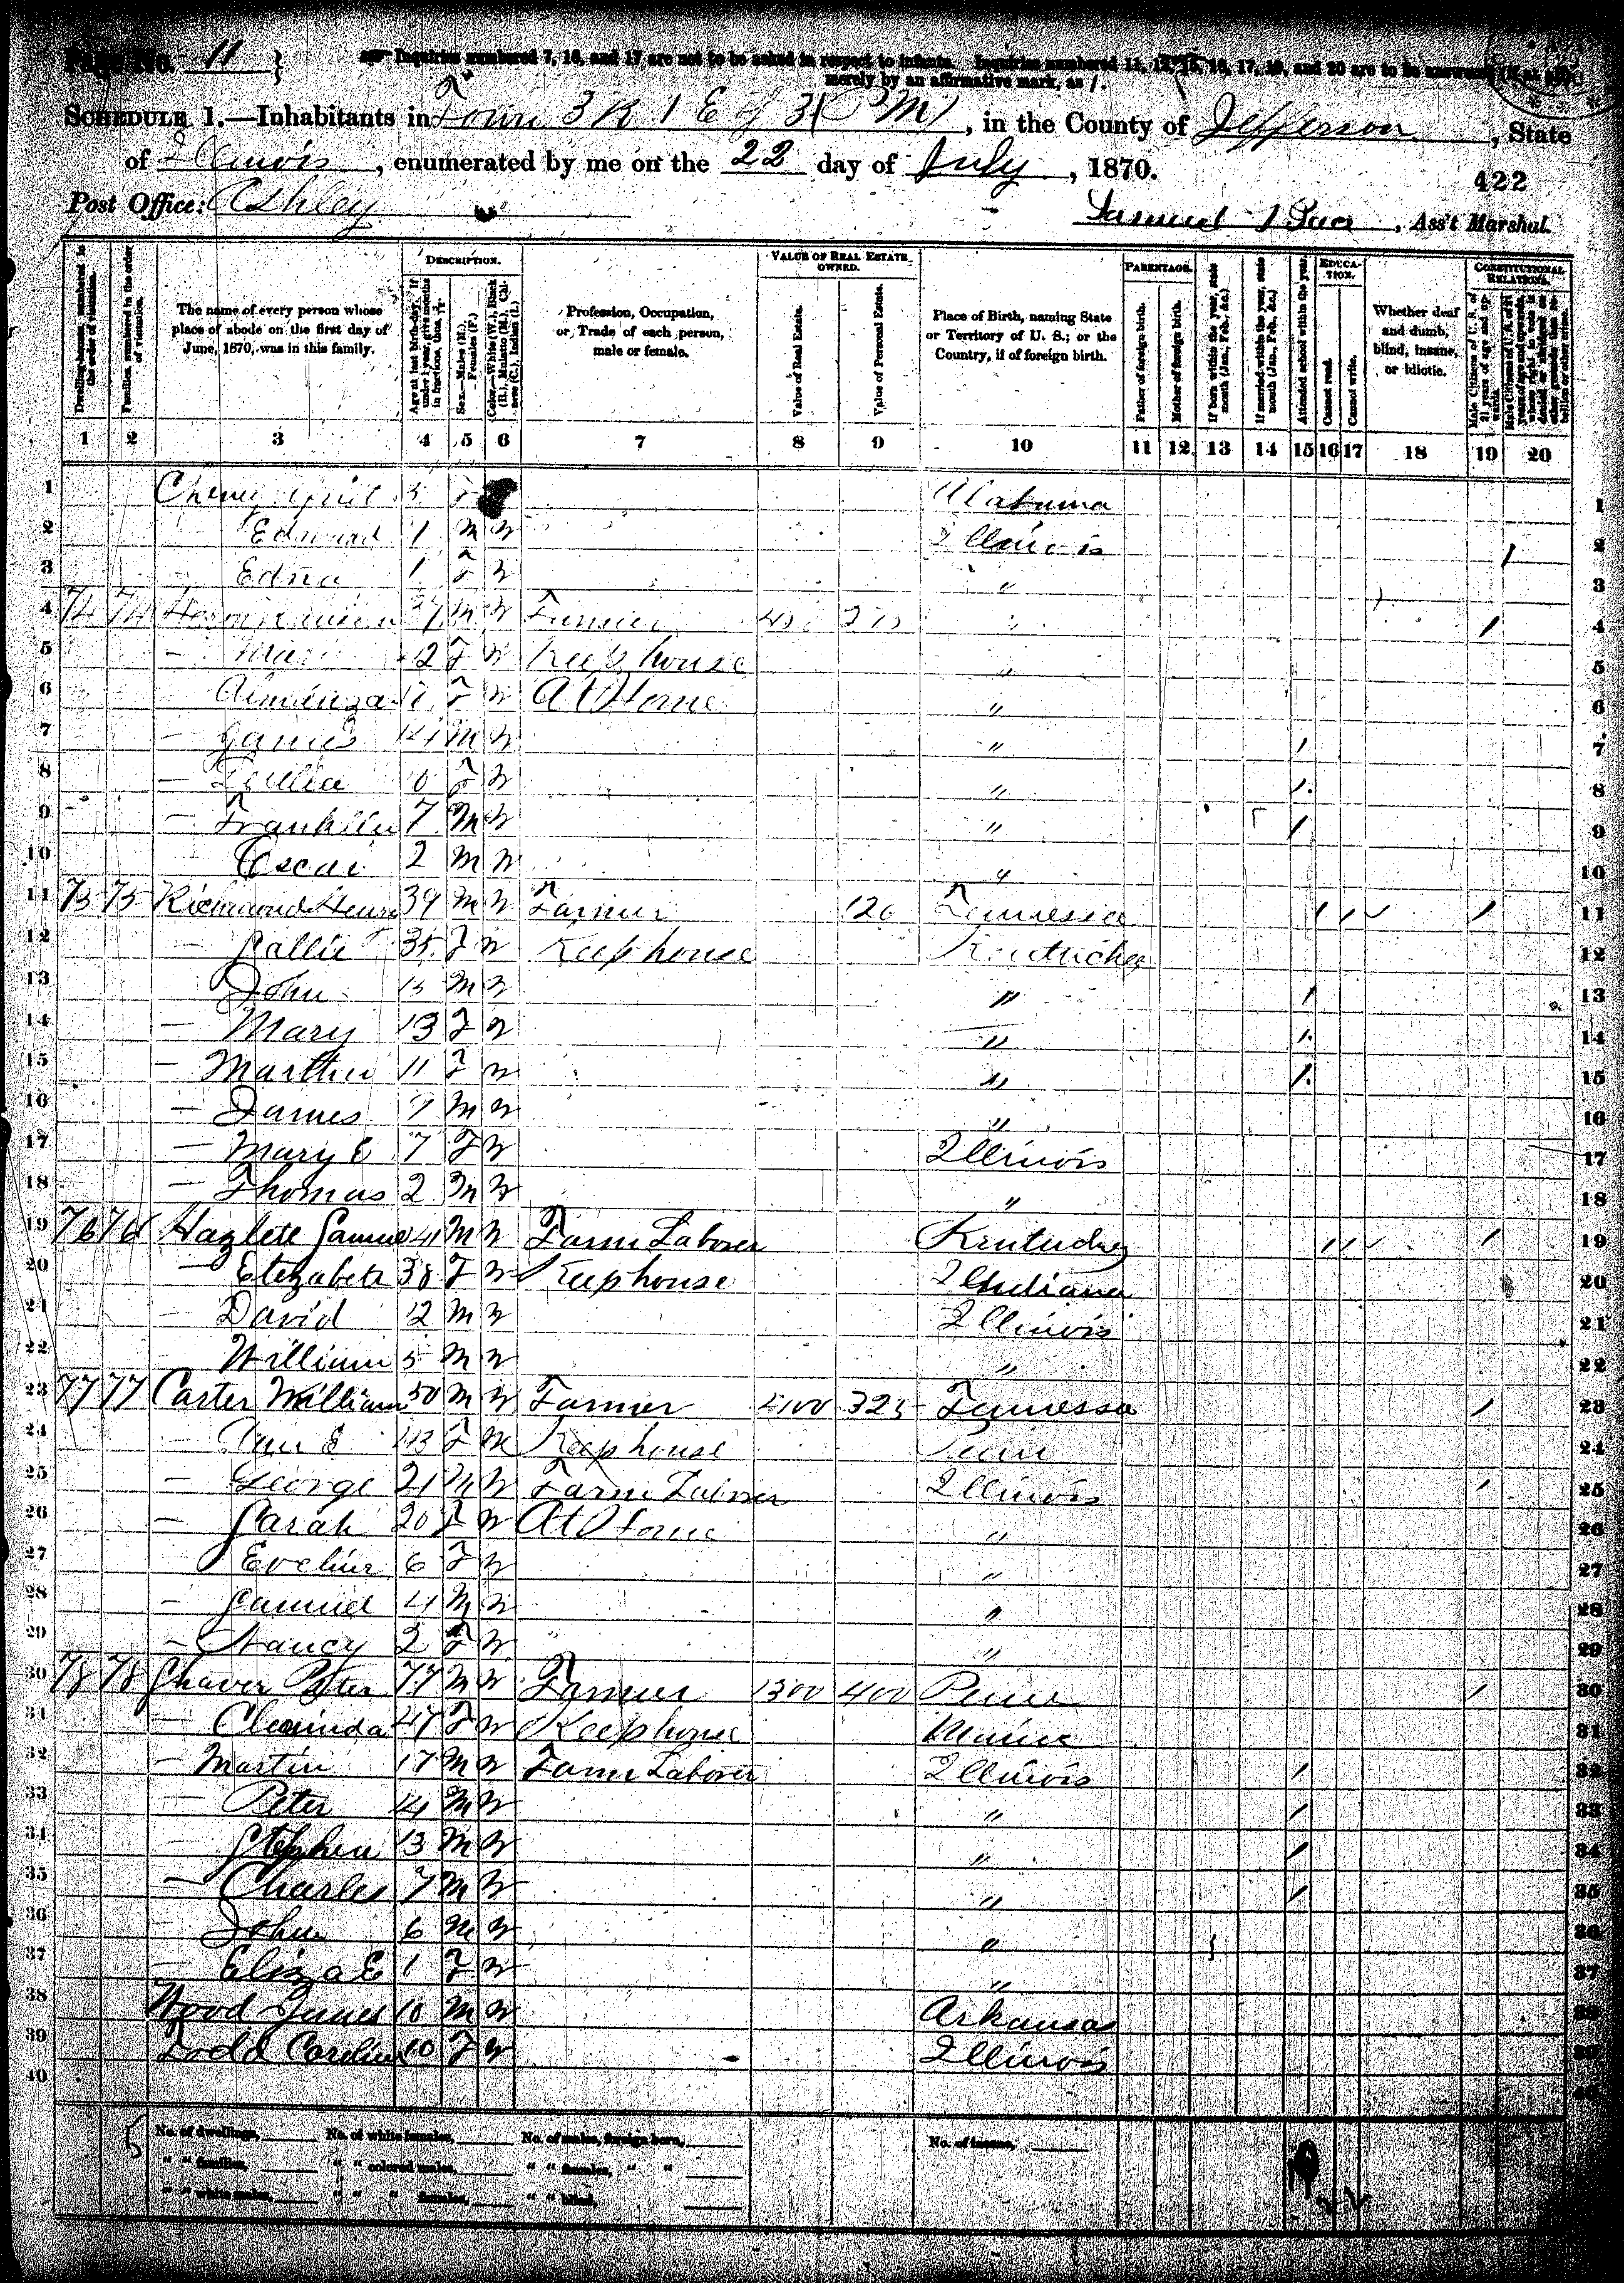 Page No. 11
Inquiries numbered 7, 16, and 17 are not to be asked in respect to infants. Inquiries numbered 11, 12, 15, 16, 17, 19, and 20 are to be answered
merely by an affirmative mark, as /.
SCHEDULE 1.—Inhabitants in Town 3 R 1 E of 3 (PM), in the County of Jefferson, State
of Illinois, enumerated by me on the 22 day of July, 1870.
422
Post Office: Ashley
Samuel, Ass't Marshal.
DESCRIPTION. VALUE OF REAL ESTATE OWNED. PARENTAGE. EDUCATION. CONSTITUTIONAL RELATIONS.
Dwelling-houses, numbered in the order of visitation.
Families, numbered in the order of visitation.
The name of every person whose place of abode on the first day of June, 1870, was in this family.
Age at last birth-day. If under 1 year, give months in fractions, thus,
Sex.—Males (M.), Females (F.)
Color.—White (W.), Black (B.), Mulatto (M.), Chinese (C.), Indian (I.)
Profession, Occupation, or Trade of each person, male or female.
Value of Real Estate.
Value of Personal Estate.
Place of Birth, naming State or Territory of U. S.; or the Country, if of foreign birth.
Father of foreign birth.
Mother of foreign birth.
If born within the year, state month (Jan., Feb., &c.)
If married within the year, state month (Jan., Feb., &c.)
Attended school within the year.
Cannot read.
Cannot write.
Whether deaf and dumb, blind, insane, or idiotic.
Male Citizens of U. S. of 21 years of age and upwards.
1 2 3 4 5 6 7 8 9 10 11 12 13 14 15 16 17 18 19 20
1 5 F Alabama 1
2 Edward 1 M W Illinois / 2
3 Edna 1 F W " 3
4 74 74 M W Farmer " / 4
5 F W Keep house " 5
6 F W At Home " 6
7 James 14 M W " / 7
8 F W " / 8
9 — Franklin 7 M W " / 9
10 Oscar 2 M W " 10
11 75 75 Richmond Henry 39 M W Farmer 120 Tennessee / / / 11
12 — Sallie 35 F W Keep house Kentuckey 12
13 — John 15 M W " / 13
14 — Mary 13 F W " / 14
15 — Martha 11 F W " / 15
16 — James 9 M W " 16
17 — Mary E 7 F W Illinois 17
18 — Thomas 2 M W " 18
19 76 76 Hazlete Samuel 41 M W Farm Laborer Kentuckey / / / 19
20 — Elizabeth 38 F W Keep house Indiana 20
21 — David 12 M W Illinois 21
22 — William 5 M W " 22
23 77 77 Carter William 50 M W Farmer 325 Tennessee / 23
24 — 43 F W Keep house 24
25 — George 21 M W Farm Laborer Illinois / 25
26 — Sarah 20 F W At Home " 26
27 Eveline 6 F W " 27
28 — Samuel 4 M W " 28
29 — Nancy 2 F W " 29
30 78 78 Shaver Peter 77 M W Farmer 1300 400 Penn / 30
31 — Clearinda 47 F W Keep house Maine 31
32 — Martin 17 M W Farm Laborer Illinois / 32
33 — Peter 14 M W " / 33
34 — Stephen 13 M W " / 34
35 — Charles 7 M W " / 35
36 — John 6 M W " 36
37 — Eliza E 1 F W " 37
38 Wood James 10 M W Arkansas 38
39 Todd Caroline 10 F W Illinois 39
40 40
5
No. of dwellings, No. of white females, No. of males, foreign born, No. of insane,
" " families, " " colored males, " " females, " "
" " white males, " " " females, " " blind,